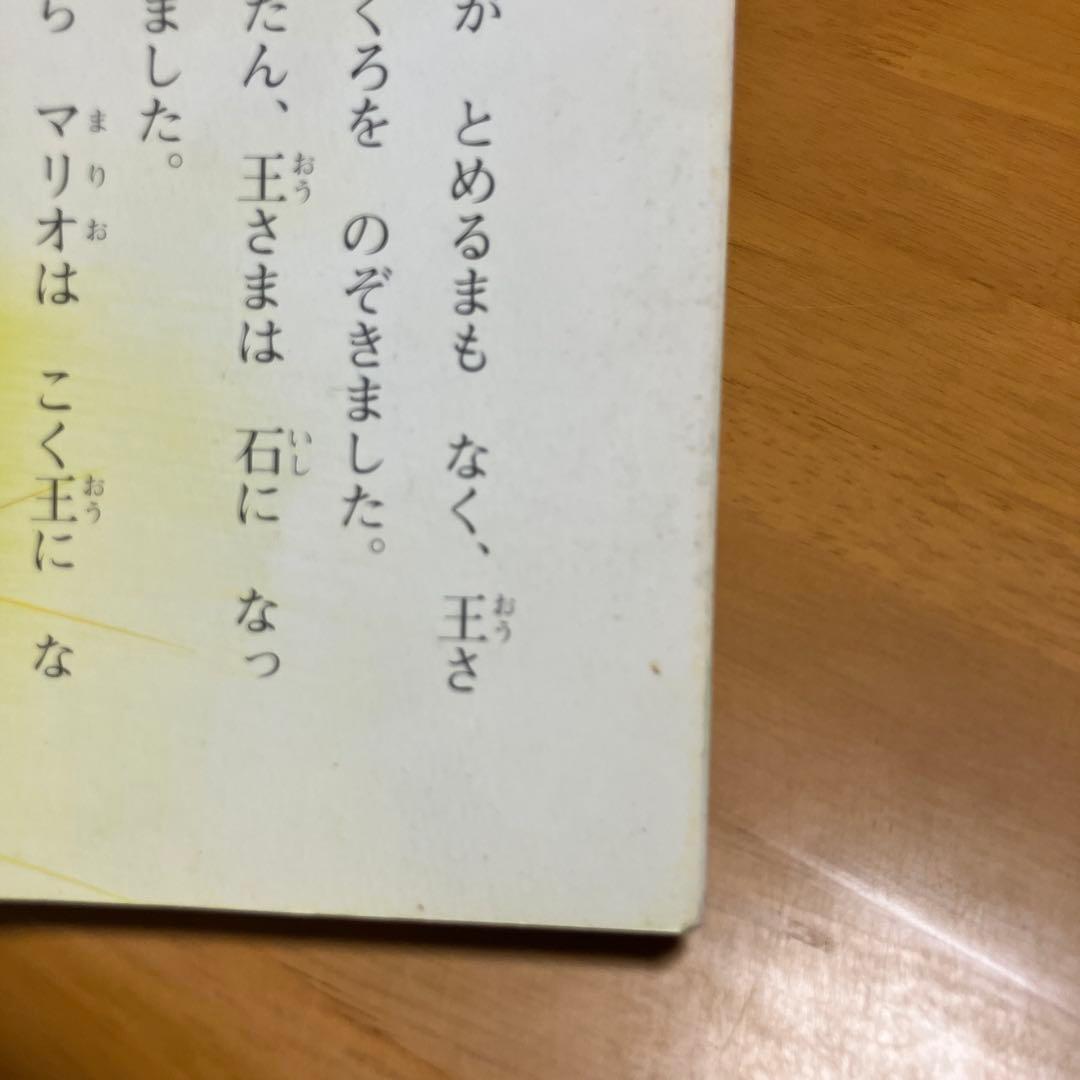 か とめるまも なく、王さ
くろを のぞきました。
たん、王さまは 石に なっ
ました。
ら マリオは こく王に な